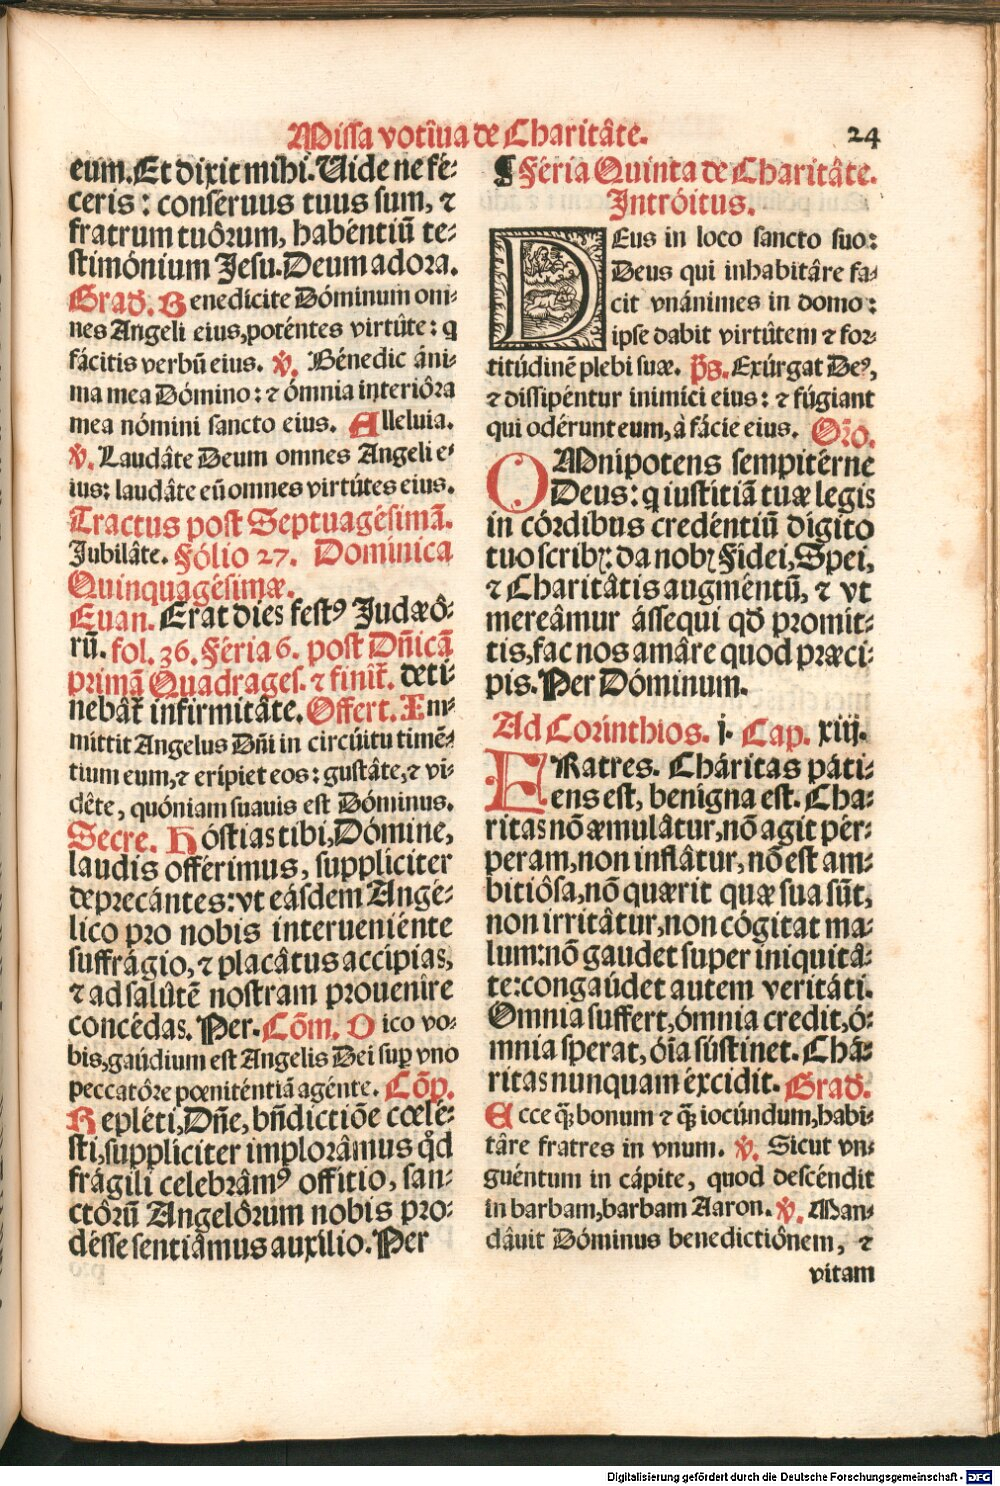 Missa votîua de Charitâte.
24
eum. Et dixit mihi. Uide ne fé-
ceris: consérvus tuus sum, ⁊
fratrum tuôrum, habéntiũ te-
stimónium Jesu. Deum adora.
Grad. Benedícite Dóminum om-
nes Angeli eius, poténtes virtûte: q
fácitis verbũ eius. ℣. Bénedic áni-
ma mea Dómino: ⁊ ómnia interiôra
mea nómini sancto eius. Alleluia.
℣. Laudâte Deum omnes Angeli e-
ius: laudâte eũ omnes virtútes eius.
Tractus post Septuagésimã.
Jubilâte. Fólio 27. Dominica
Quinquagésimæ.
Euan. Erat dies festꝰ Judæô-
rũ. fol. 36. Féria 6. post Dñicã
primã Quadrages. ⁊ finit̃. deti-
nebat̃ infirmitâte. Offert. Im-
mittit Angelus Dñi in circúitu timẽ-
tium eum, ⁊ erípiet eos: gustâte, ⁊ vi-
dête, quóniam suauis est Dóminus.
Secre. Hóstias tibi, Dómine,
laudis offérimus, supplíciter
deprecántes: vt eásdem Angé-
lico pro nobis interueniénte
suffrágio, ⁊ placâtus accípias,
⁊ ad salûtẽ nostram prouenîre
concédas. Per. Cõm. Dico vo-
bis, gaúdium est Angelis Dei sup vno
peccatôre pœniténtiã agénte. Cõp.
Repléti, Dñe, bñdictiõe cœlé-
sti, supplíciter implorâmus qd̃
frágili celebrâmꝰ offítio, san-
ctôrũ Angelôrum nobis pro-
désse sentiâmus auxílio. Per
¶ Féria Quinta de Charitâte.
Intróitus.
DEus in loco sancto suo:
Deus qui inhabitâre fa-
cit vnánimes in domo:
ipse dabit virtûtem ⁊ for-
titúdinẽ plebi suæ. p̃s. Exúrgat Deꝰ,
⁊ dissipéntur inimíci eius: ⁊ fúgiant
qui odérunt eum, à fácie eius. Or̃o.
OMnípotens sempitérne
Deus: q iustítiã tuæ legis
in córdibus credéntiũ dígito
tuo scribꝭ: da nobꝭ Fidei, Spei,
⁊ Charitâtis augméntũ, ⁊ vt
mereâmur ássequi qd̃ promít-
tis, fac nos amâre quod præci-
pis. Per Dóminum.
Ad Corinthios. j. Cap. xiij.
FRatres. Cháritas páti-
ens est, benígna est. Chá-
ritas nõ æmulâtur, nõ agit pér-
peram, non inflâtur, nõ est am-
bitiôsa, nõ quærit quæ sua sũt,
non irritâtur, non cógitat ma-
lum: nõ gaudet super iniquitâ-
te: congaúdet autem veritáti.
Omnia suffert, ómnia credit, ó-
mnia sperat, óĩa sústinet. Chá-
ritas nunquam éxcidit. Grad.
Ecce q̃ bonum ⁊ q̃ iocúndum, habi-
táre fratres in vnum. ℣. Sicut vn-
guéntum in cápite, quod descéndit
in barbam, barbam Aaron. ℣. Man-
dâuit Dóminus benedictiônem, ⁊
vitam
Digitalisierung gefördert durch die Deutsche Forschungsgemeinschaft - DFG